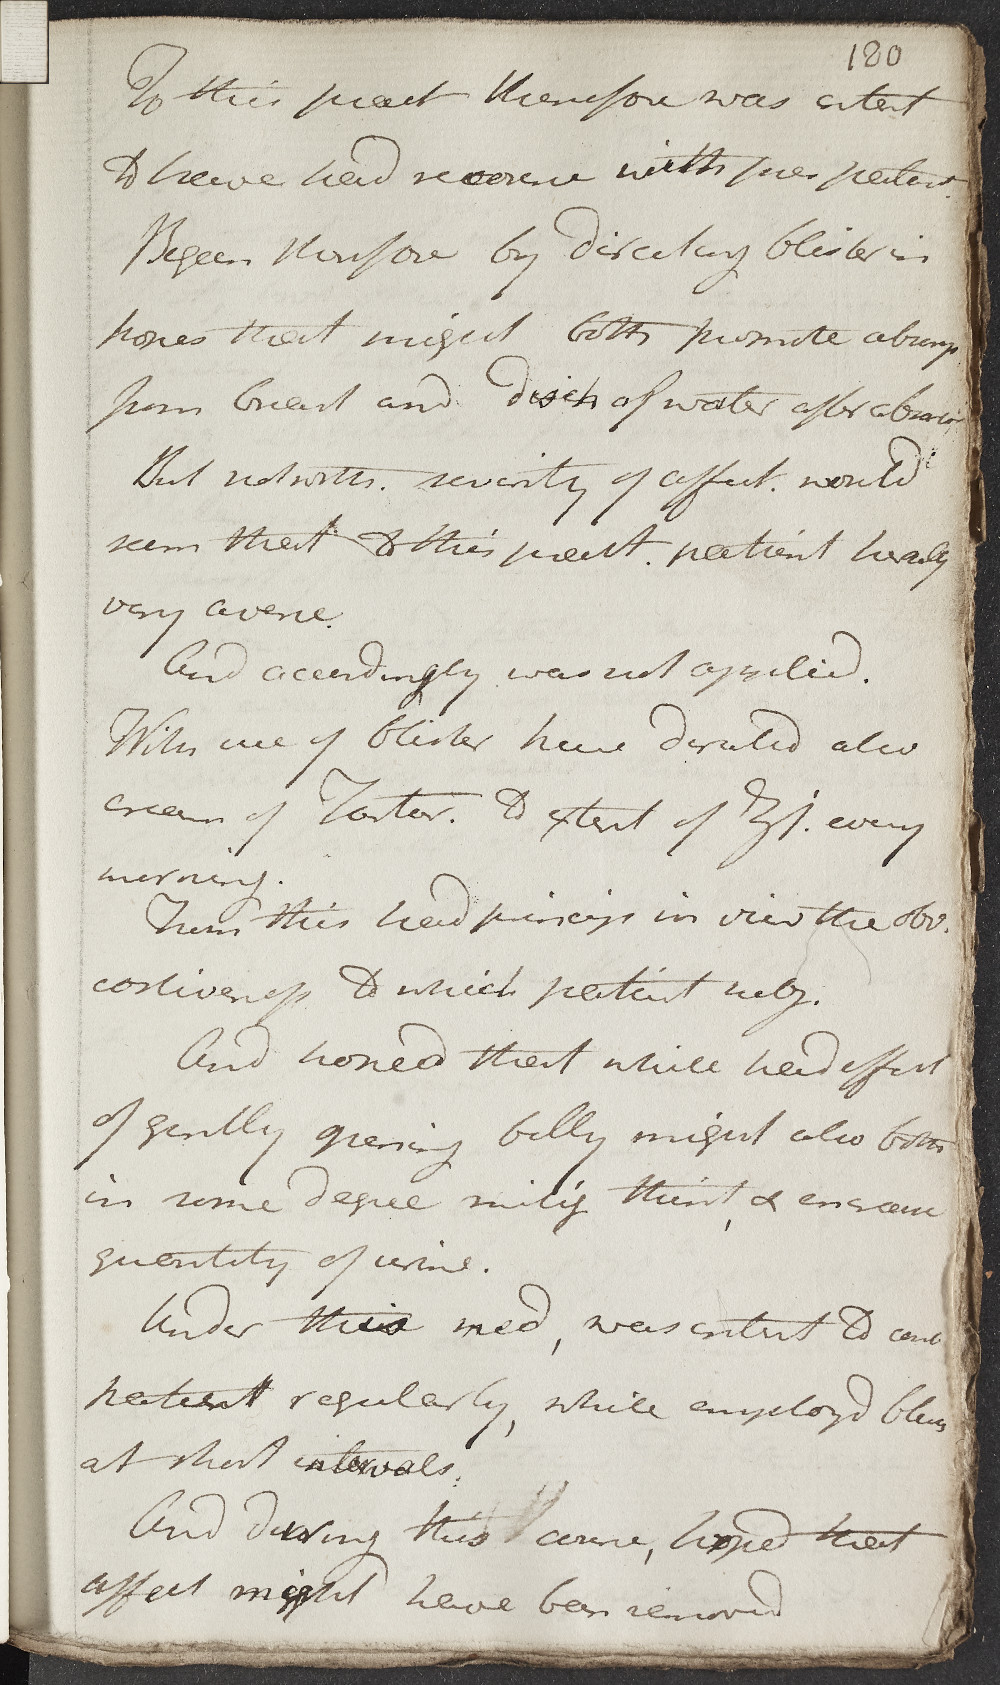 180
To this pract therefore was intent
to have had recourse with pres patient
Began therefore by directing blister in
hopes that might both promote absorp
from breast and disch of water after absorp
But notwith. severity of affect. would
seem that to this pract. patient herself
very averse.
And accordingly was not applied.
With use of blister have directed also
cream of Tartar. to extent of ℥j. every
morning.
From this had princip in view the obv.
costiveness to which patient subj.
And hoped that while had effect
of gently opening belly might also both
in some degree mitig thirst, & encrease
quantity of urine.
Under this med, was intent to cont
patient regularly, while employd blers
at short intervals.
And during this course, hoped that
affect might have been removed